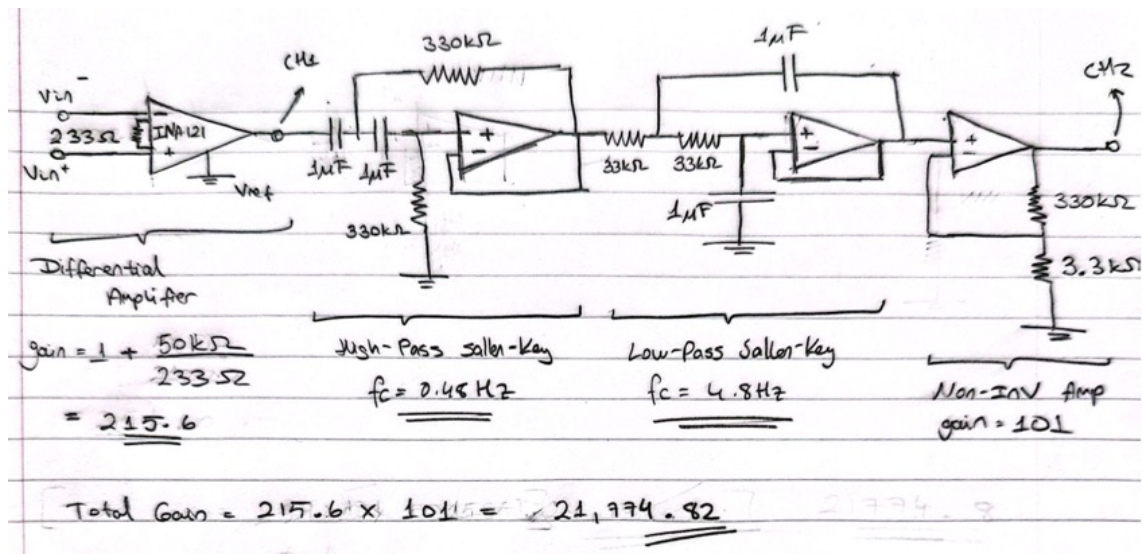 330kΩ
1μF
CH1
CH2
Vin -
233Ω
INA121
Vin+
Vref
1μF 1μF
330kΩ
33kΩ 33kΩ
1μF
330kΩ
3.3kΩ
Differential
Amplifier
gain = 1 + 50kΩ
233Ω
= 215.6
High-Pass Sallen-Key
fc = 0.48 Hz
Low-Pass Sallen-Key
fc = 4.8Hz
Non-Inv Amp
gain = 101
Total Gain = 215.6 x 101 = 21,774.82
21774.8